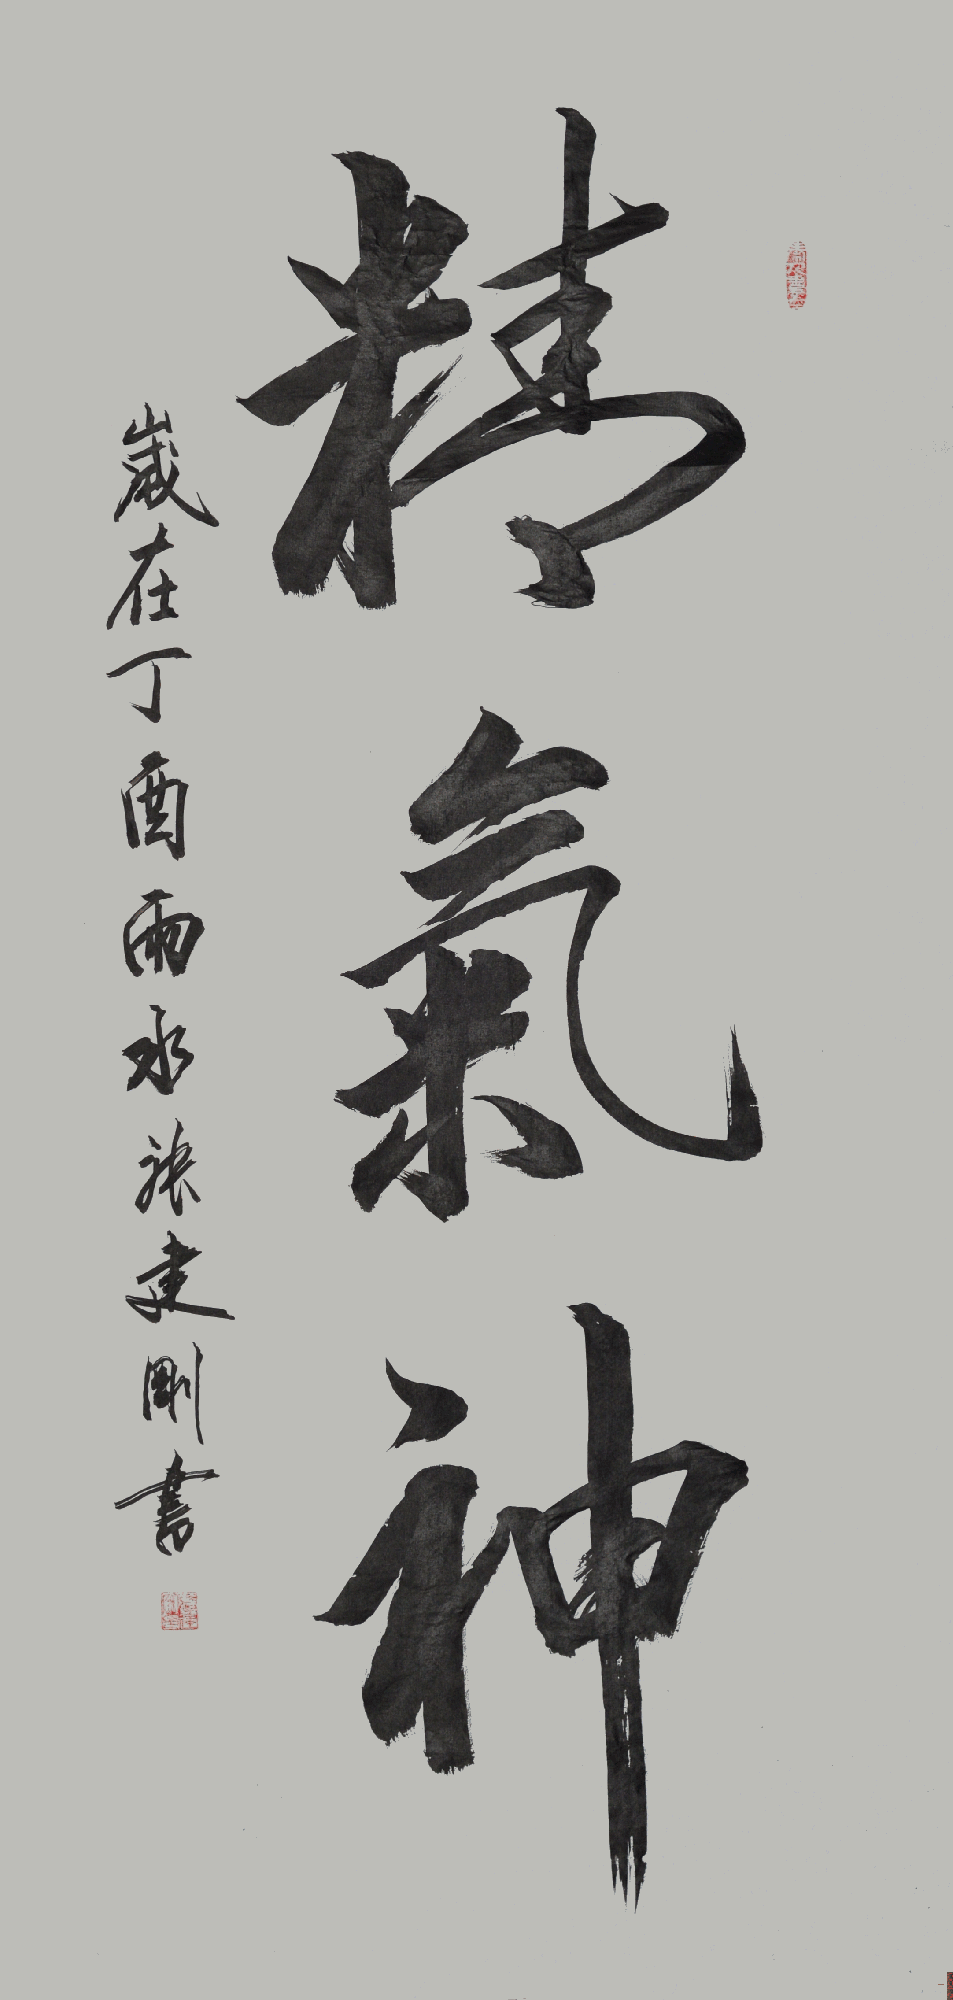 精氣神
歲在丁酉雨水張建剛書